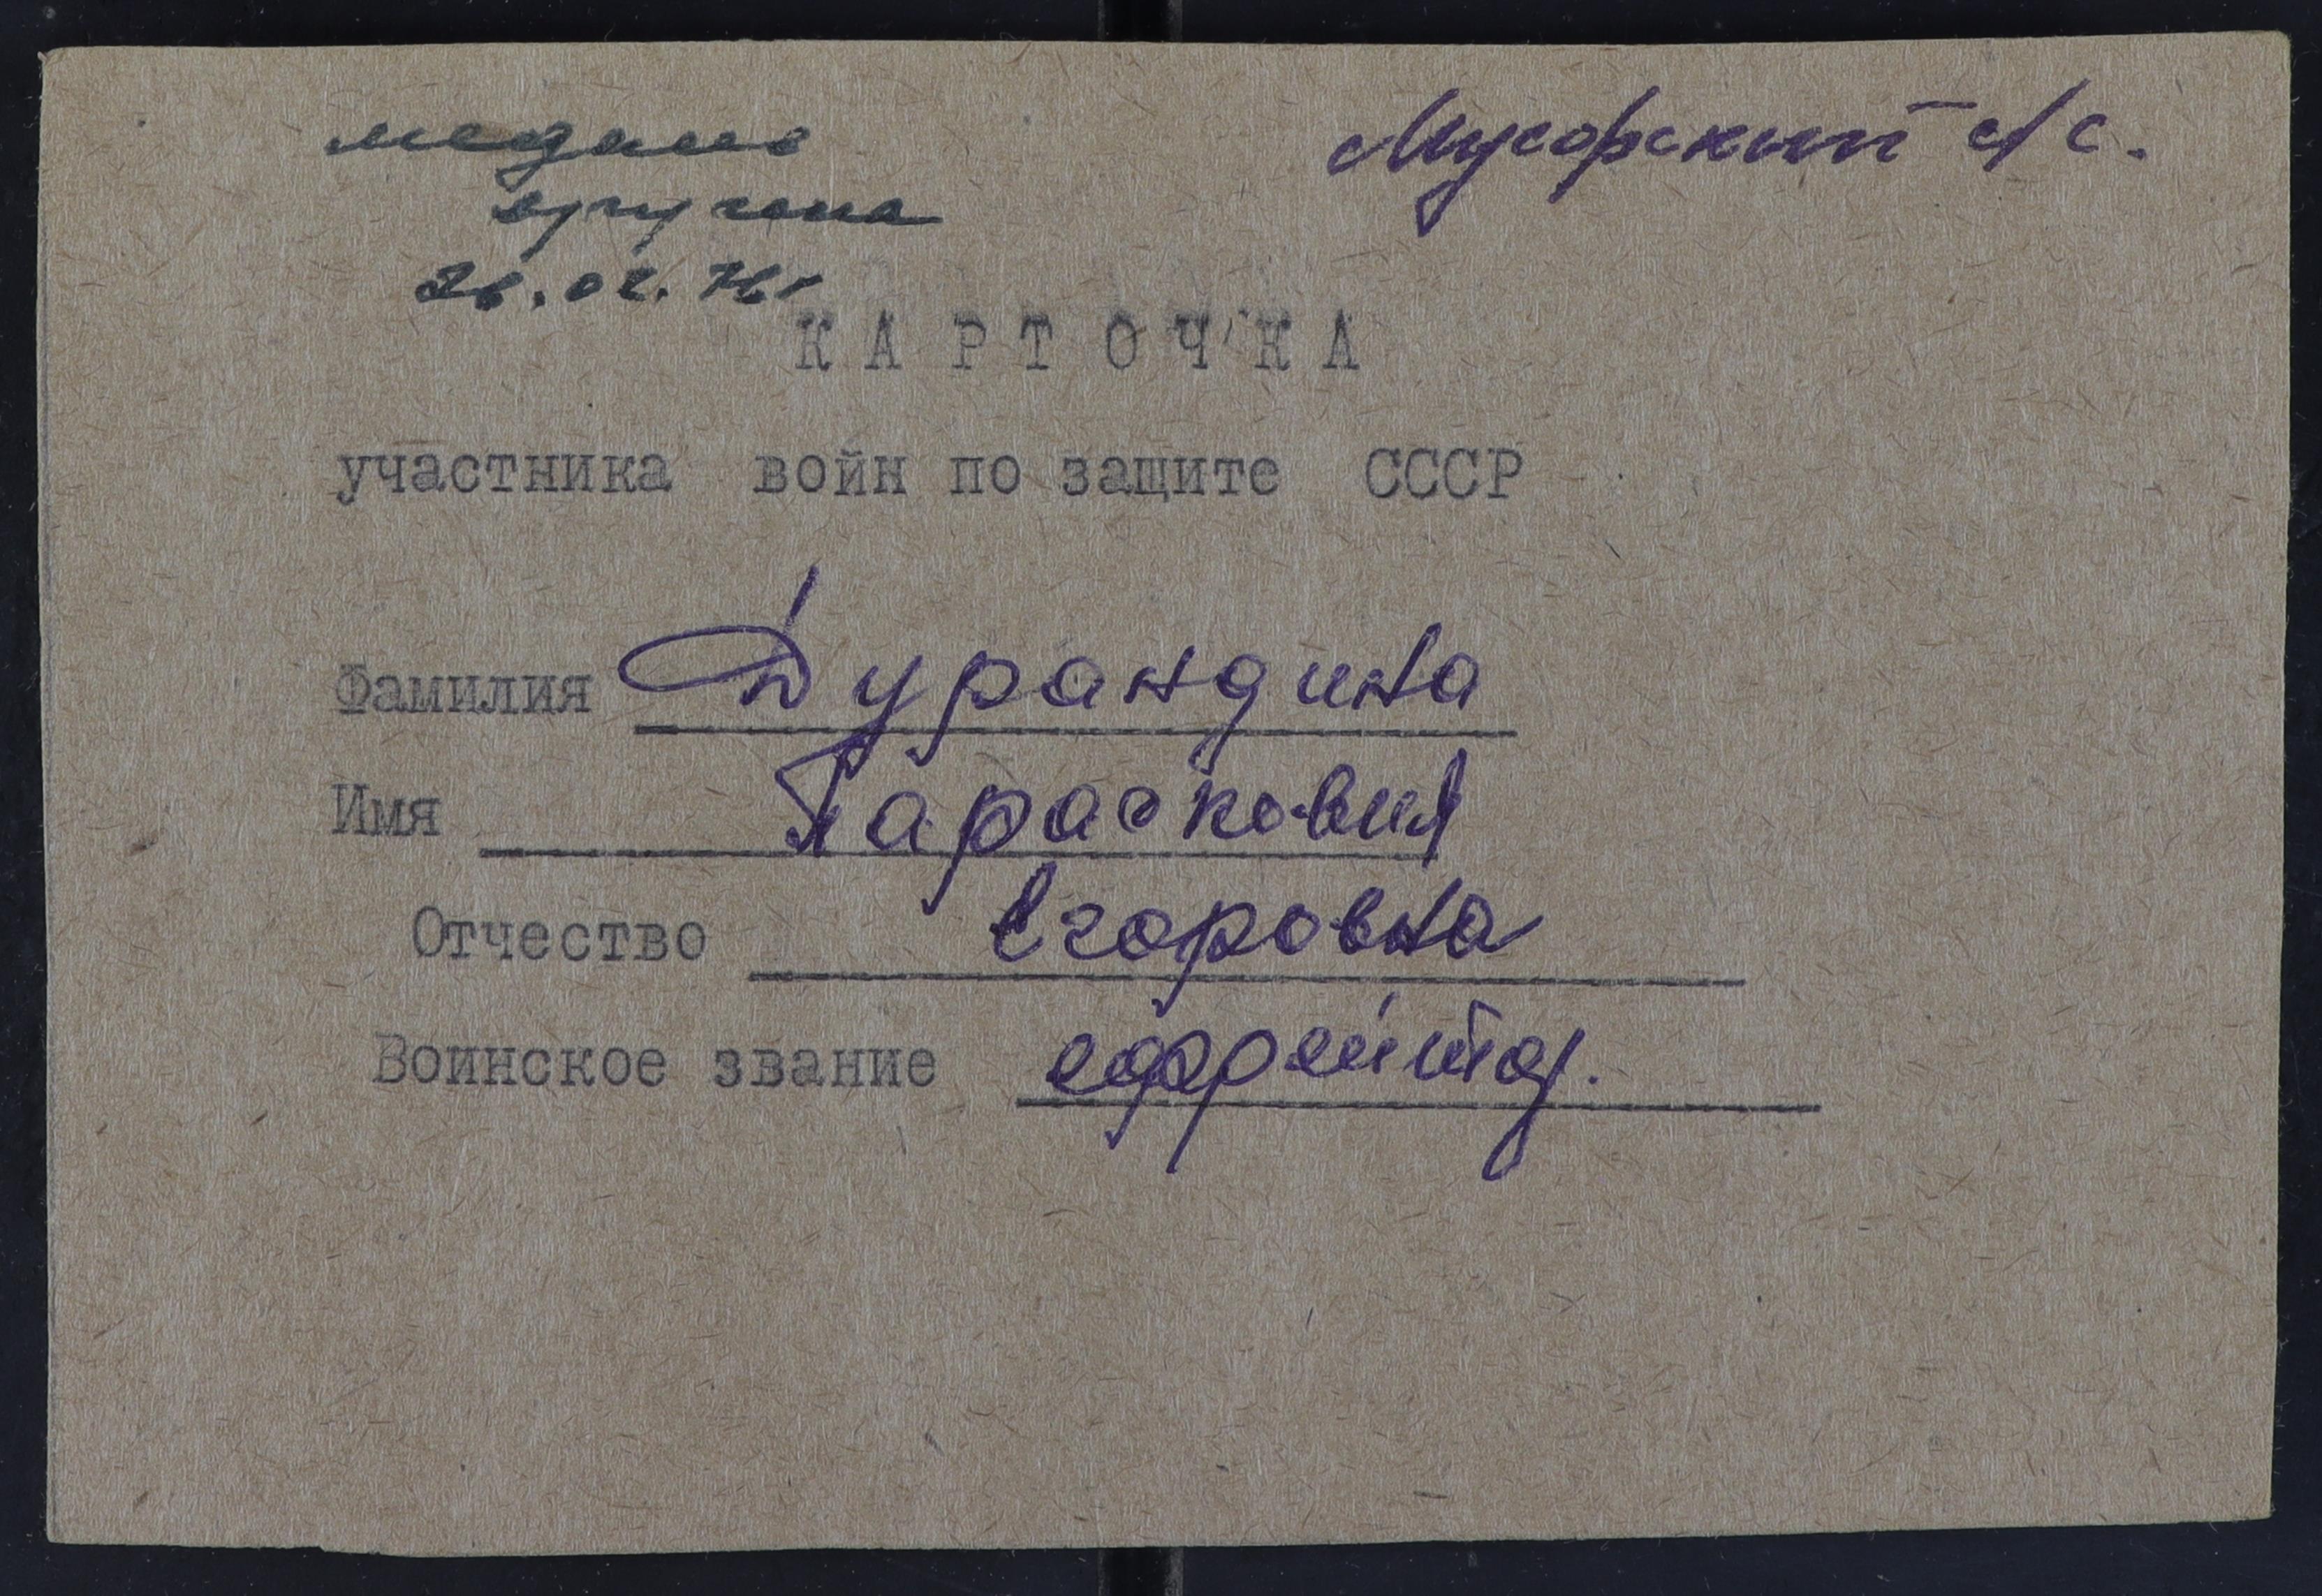 медаль
вручена
26.02.76г
Мусорский с/с.
КАРТОЧКА
участника войн по защите СССР
Фамилия Дурандина
Имя Парасковия
Отчество Егоровна
Воинское звание ефрейтор.